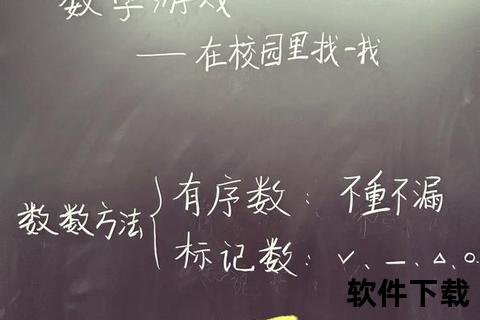 数学游戏
——在校园里找一找
数数方法{有序数：不重不漏
标记数：✓、一、△、○.
软件下载